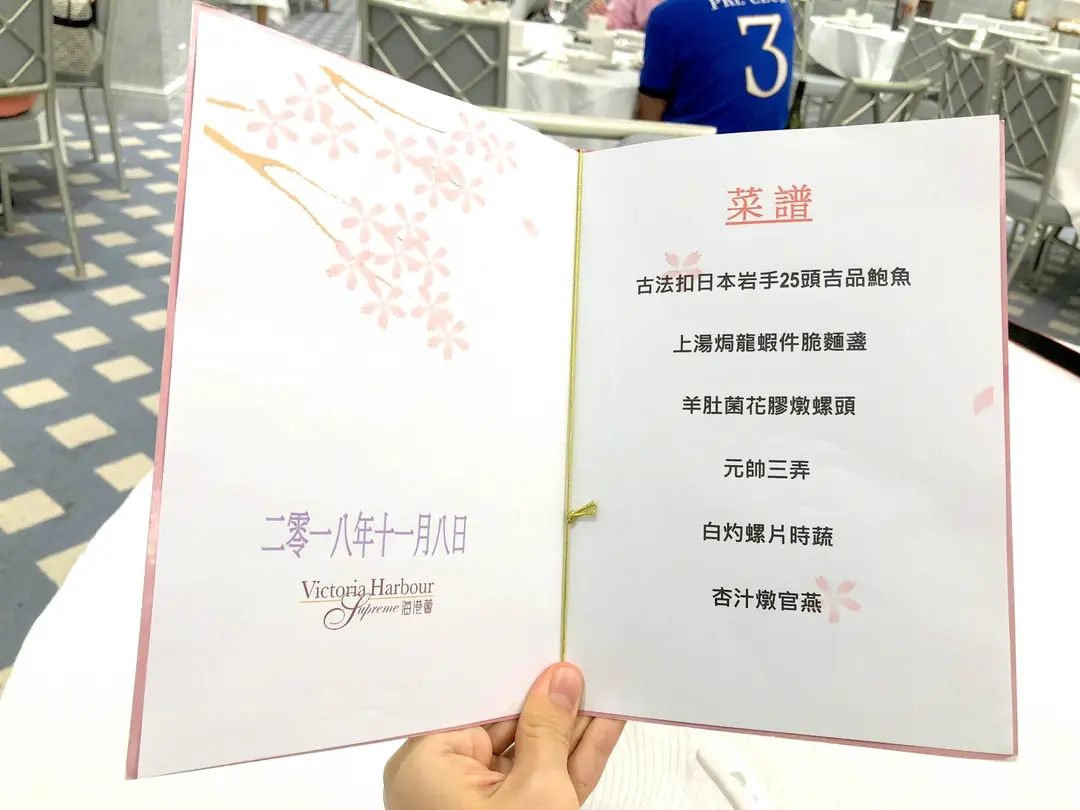 PRL CLUB
3
二零一八年十一月八日
Victoria Harbour
Supreme 海港薈
菜譜
古法扣日本岩手25頭吉品鮑魚
上湯焗龍蝦件脆麵盞
羊肚菌花膠燉螺頭
元帥三弄
白灼螺片時蔬
杏汁燉官燕